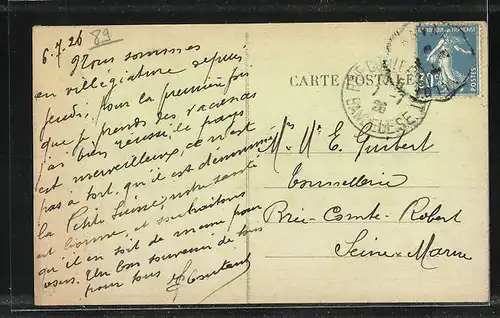 6.7.26 89
Nous sommes
en villégiature depuis
jeudi, pour la première fois
que je prends des vacances
j'ai bien réussi, le pays
est merveilleux, ce n'est
pas à tort, qu'il est dénommé
la Petite Suisse, notre santé
est bonne, et souhaitons
qu'il en soit de même pour
vous. Un bon souvenir de tous
pour tous
CARTE POSTALE
30c
POSTES
26
Mr Mme E. Guibert
Tonnellerie
Brie-Comte-Robert
Seine & Marne